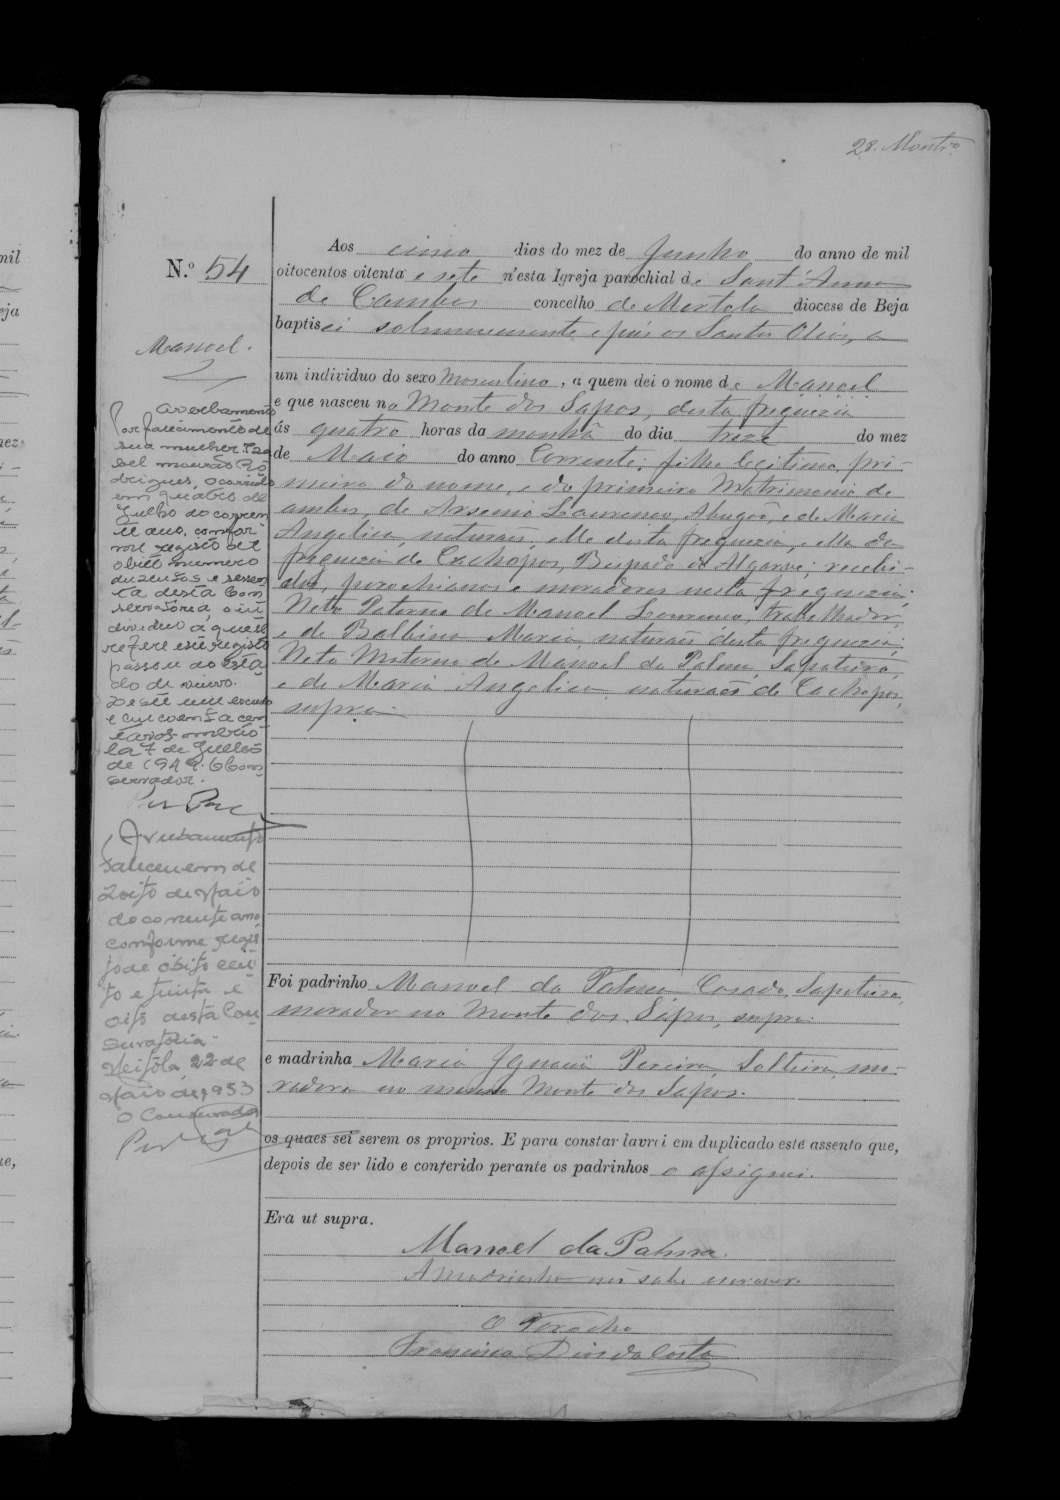 28. Montrº
N.º 54
Manoel.
Averbamento
Por falecimento de
sua mulher Isa
bel mourão Ro
drigues, ocorrido
em quatro de
Julho do corren
te ano, confor
me registo de
obito numero
duzentos e sessen
ta desta Con
servatória, o in
dividuo a quem
refere este registo
passou ao esta
do de viuvo.
e cincoenta cen
tavos. Mérto
la 7 de Julho
de 1949. O Con
servador.
Averbamento
Faleceu em de
zoito de Maio
do corrente ano
conforme regis
to de óbito cen
to e trinta e
oito desta Con
servatória.
Mértola, 22 de
Maio de 1953
O Conservador
Aos cinco dias do mez de Junho do anno de mil
oitocentos oitenta e sete n'esta Igreja parochial de Sant'Anna
de Cambas concelho de Mertola diocese de Beja
baptisei solemnemente e puz os Santos Oleos, a
um individuo do sexo Masculino, a quem dei o nome de Manoel
e que nasceu no Monte dos Sapos, desta freguezia
ás quatro horas da manhã do dia treze do mez
de Maio do anno Corrente; filho legitimo, pri-
meiro do nome, e do primeiro Matrimonio de
ambos, de Arsenio Lourenço, e de Maria
Angelica, naturaes, elle desta freguezia, ella da
freguezia de Cachopos, Bispado do Algarve; recebi-
dos, parochianos e moradores nesta freguezia;
Neto Paterno de Manoel Lourenço, trabalhador,
e de Balbina Maria, naturaes desta freguezia;
Neto Materno de Manoel da Palma, Sapateiro,
e de Maria Angelica, naturaes de Cachopos,
supra.
Foi padrinho Manoel da Palma, Casado, Sapateiro,
morador no Monte dos Sapos, supra.
e madrinha Maria Ignacia Pereira, Solteira, mo-
radora no mesmo Monte dos Sapos.
os quaes sei serem os proprios. E para constar lavrei em duplicado este assento que,
depois de ser lido e conferido perante os padrinhos o assignei.
Era ut supra.
Manoel da Palma.
A madrinha não sabe escrever.
O Parocho
Francisco Dias da Costa